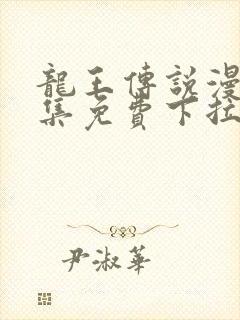 龍王傳說漫
集免費下拉
尹淑華